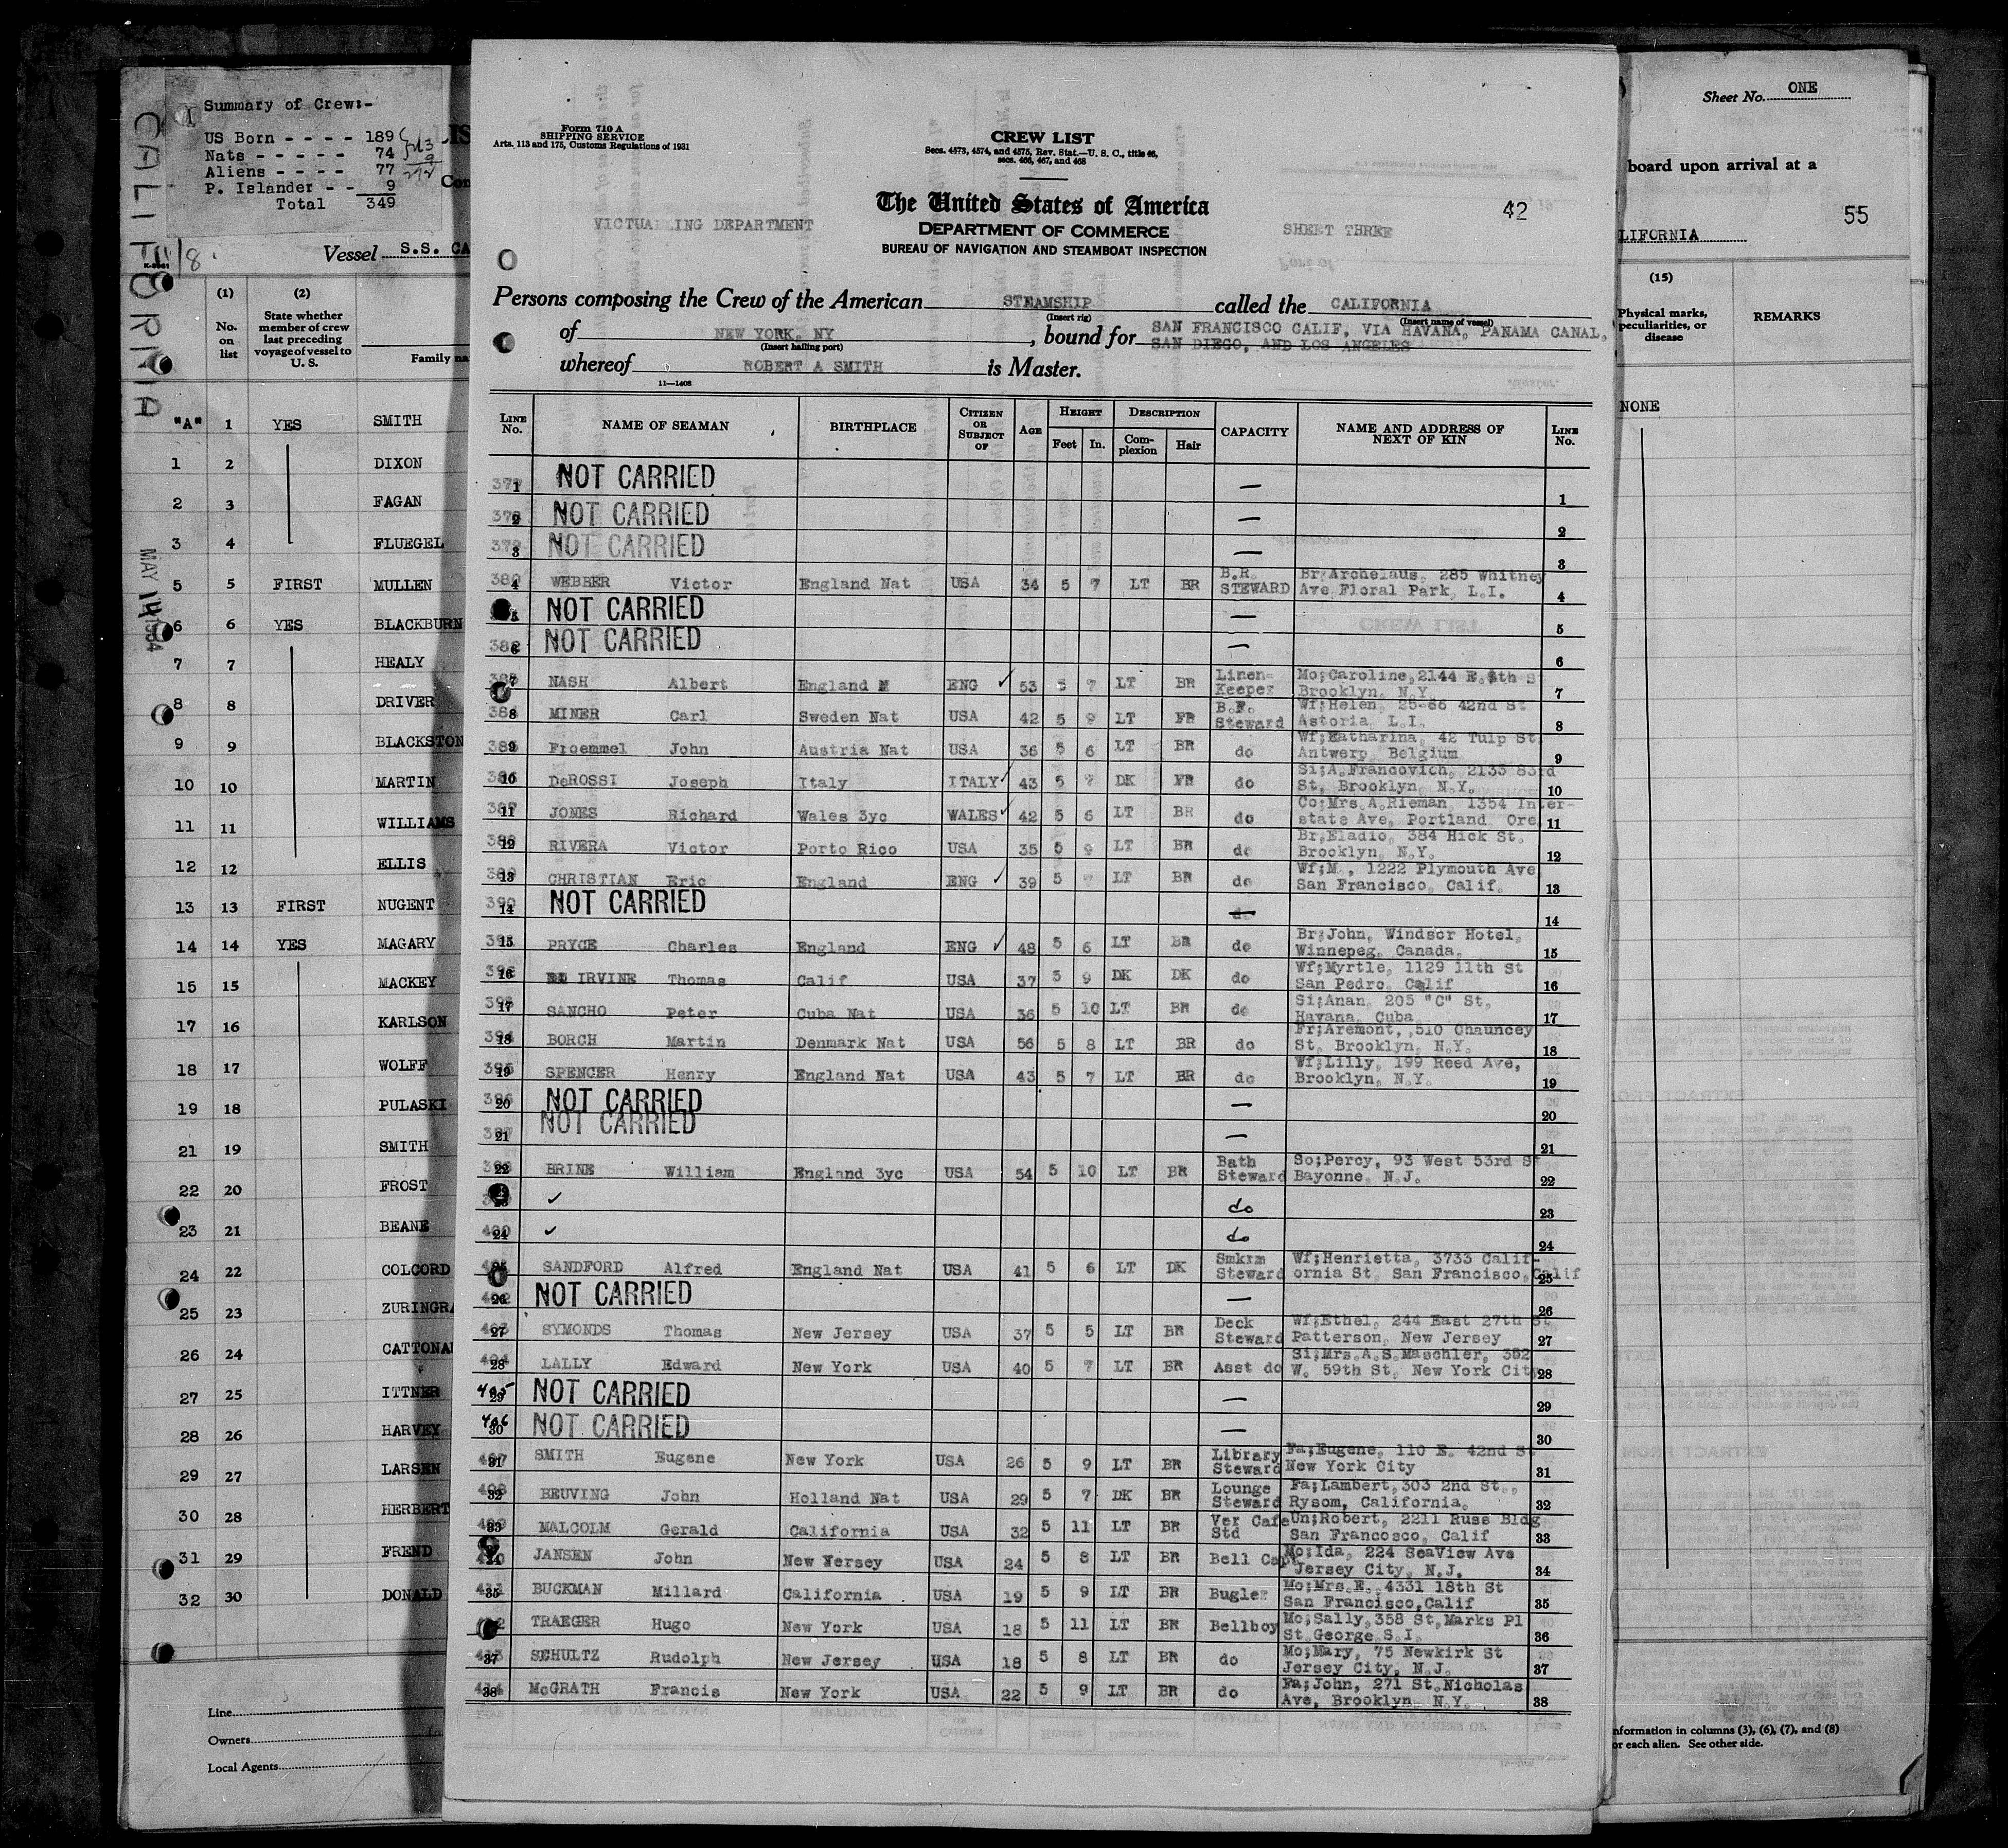 CALIFORNIA
Summary of Crew:-
US Born - - - - 189
Nats - - - - - 74
Aliens - - - - 77
P. Islander - - 9
Total 349
Vessel S.S. CA
(1) (2)
No. on list
State whether member of crew last preceding voyage of vessel to U. S.
Family na
MAY 14 1934
"A" 1 YES SMITH
1 2 DIXON
2 3 FAGAN
3 4 FLUEGEL
5 5 FIRST MULLEN
6 6 YES BLACKBURN
7 7 HEALY
8 8 DRIVER
9 9 BLACKSTON
10 10 MARTIN
11 11 WILLIAMS
12 12 ELLIS
13 13 FIRST NUGENT
14 14 YES MAGARY
15 15 MACKEY
17 16 KARLSON
18 17 WOLFF
19 18 PULASKI
21 19 SMITH
22 20 FROST
23 21 BEANE
24 22 COLCORD
25 23 ZURINGRA
26 24 CATTONA
27 25 ITTNER
28 26 HARVEY
29 27 LARSEN
30 28 HERBERT
31 29 FREND
32 30 DONALD
Line
Owners
Local Agents
Form 710 A
SHIPPING SERVICE
Arts. 113 and 175, Customs Regulations of 1931
CREW LIST
Secs. 4573, 4574, and 4575, Rev. Stat.—U. S. C., title 46,
secs. 466, 467, and 468
The United States of America
42
VICTUALLING DEPARTMENT
DEPARTMENT OF COMMERCE
SHEET THREE
BUREAU OF NAVIGATION AND STEAMBOAT INSPECTION
Persons composing the Crew of the American STEAMSHIP called the CALIFORNIA
(Insert rig) (Insert name of vessel)
of NEW YORK, NY, bound for SAN FRANCISCO CALIF, VIA HAVANA, PANAMA CANAL,
(Insert hailing port) SAN DIEGO, AND LOS ANGELES
whereof ROBERT A SMITH is Master.
11—1408
LINE No. NAME OF SEAMAN BIRTHPLACE CITIZEN OR SUBJECT OF AGE HEIGHT Feet In. DESCRIPTION Complexion Hair CAPACITY NAME AND ADDRESS OF NEXT OF KIN LINE No.
1 NOT CARRIED — 1
2 NOT CARRIED — 2
3 NOT CARRIED — 3
380 4 WEBBER Victor England Nat USA 34 5 7 LT BR B.R. STEWARD Br;Archelaus, 285 Whitney Ave Floral Park, L.I. 4
NOT CARRIED — 5
382 6 NOT CARRIED — 6
7 NASH Albert England ENG ✓ 53 5 7 LT BR Linen-Keeper Mo;Caroline, 2144 E. 4th S Brooklyn, N.Y. 7
384 8 MINER Carl Sweden Nat USA 42 5 9 LT FR B.F. Steward Wf;Helen, 25-66 42nd St Astoria, L.I. 8
385 9 Froemmel John Austria Nat USA 36 5 6 LT BR do Wf;Katharina, 42 Tulp St. Antwerp, Belgium 9
386 10 DeROSSI Joseph Italy ITALY ✓ 43 5 7 DK FR do Si;A.Francovich, 2133 83rd St, Brooklyn, N.Y. 10
387 11 JONES Richard Wales 3yc WALES ✓ 42 5 6 LT BR do Co;Mrs.A.Rieman, 1354 Inter-state Ave, Portland, Ore 11
388 12 RIVERA Victor Porto Rico USA 35 5 9 LT BR do Br;Eladio, 384 Hick St. Brooklyn, N.Y. 12
389 13 CHRISTIAN Eric England ENG ✓ 39 5 7 LT BR do Wf;M., 1222 Plymouth Ave San Francisco, Calif. 13
390 14 NOT CARRIED — 14
15 PRYCE Charles England ENG ✓ 48 5 6 LT BR do Br;John, Windsor Hotel, Winnepeg, Canada. 15
16 IRVINE Thomas Calif USA 37 5 9 DK DK do Wf;Myrtle, 1129 11th St San Pedro, Calif 16
17 SANCHO Peter Cuba Nat USA 36 5 10 LT BR do Si;Anan, 205 "C" St, Havana, Cuba 17
394 18 BORCH Martin Denmark Nat USA 56 5 8 LT BR do Fr;Aremont, 510 Chauncey St. Brooklyn, N.Y. 18
395 19 SPENCER Henry England Nat USA 43 5 7 LT BR do Wf;Lilly, 199 Reed Ave, Brooklyn, N.Y. 19
396 20 NOT CARRIED — 20
397 21 NOT CARRIED — 21
22 BRINE William England 3yc USA 54 5 10 LT BR Bath Steward So;Percy, 93 West 53rd St Bayonne, N.J. 22
23 ✓ do 23
400 24 ✓ do 24
SANDFORD Alfred England Nat USA 41 5 6 LT DK Smkrm Steward Wf;Henrietta, 3733 Calif-ornia St, San Francisco, Calif 25
402 26 NOT CARRIED — 26
403 27 SYMONDS Thomas New Jersey USA 37 5 5 LT BR Deck Steward Wf;Ethel, 244 East 27th St. Patterson, New Jersey 27
404 28 LALLY Edward New York USA 40 5 7 LT BR Asst do Si;Mrs.A.S.Maschler, 352 W. 59th St, New York City 28
405 29 NOT CARRIED — 29
406 30 NOT CARRIED — 30
407 31 SMITH Eugene New York USA 26 5 9 LT BR Library Steward Fa;Eugene, 110 E. 42nd St New York City 31
408 32 BEUVING John Holland Nat USA 29 5 7 DK BR Lounge Steward Fa;Lambert, 303 2nd St., Rysom, California. 32
409 33 MALCOLM Gerald California USA 32 5 11 LT BR Ver Cafe Std Un;Robert, 2211 Russ Bldg San Francosco, Calif 33
JANSEN John New Yersey USA 24 5 8 LT BR Bell Capt Mo;Ida, 224 SeaView Ave Jersey City, N.J. 34
411 35 BUCKMAN Millard California USA 19 5 9 LT BR Bugler Mo;Mrs.E. 4331 18th St San Francisco, Calif 35
TRAEGER Hugo New York USA 18 5 11 LT BR Bellboy Mo;Sally, 358 St.Marks Pl St.George S.I. 36
413 37 SCHULTZ Rudolph New Jersey USA 18 5 8 LT BR do Mo;Mary, 75 Newkirk St Jersey City, N.J. 37
414 38 McGRATH Francis New York USA 22 5 9 LT BR do Fa;John, 271 St.Nicholas Ave, Brooklyn N.Y. 38
Sheet No. ONE
board upon arrival at a
55
LIFORNIA
(15)
Physical marks, peculiarities, or disease
REMARKS
NONE
nformation in columns (3), (6), (7), and (8)
or each alien. See other side.